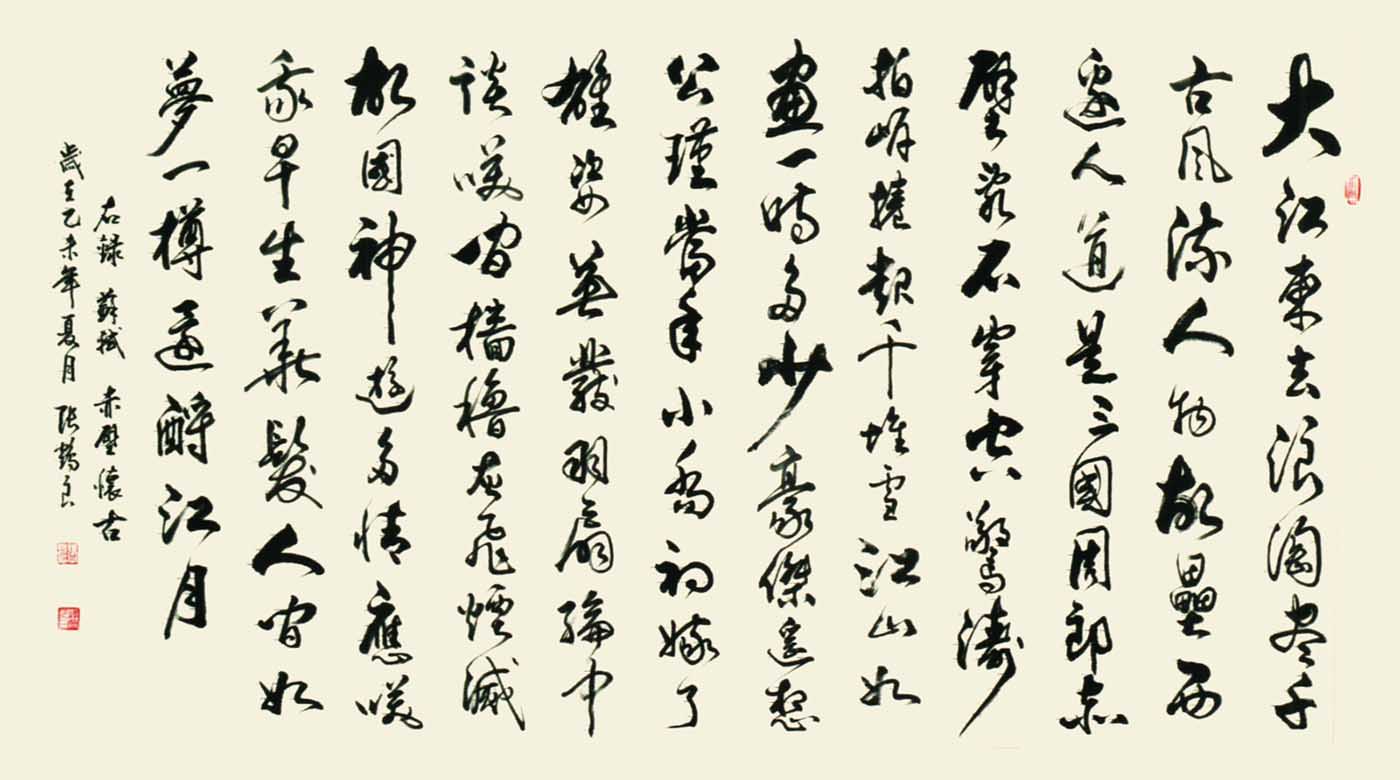 大江東去浪淘尽千
古風流人物故壘西
邊人道是三國周郎赤
壁亂石穿空驚濤
拍岸捲起千堆雪江山如
畫一時多少豪傑遙想
公瑾當年小喬初嫁了
雄姿英發羽扇綸巾
談咲間檣櫓灰飛煙滅
故國神遊多情應咲
我早生華髮人間如
夢一樽還酹江月
右錄 蘇軾 赤壁懷古
歲在乙未年夏月 張